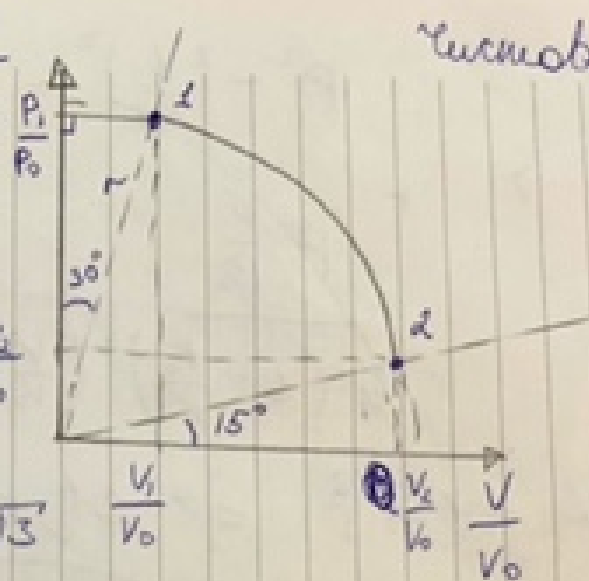 Чистов
1
P₁
P₀
r
30°
2
15°
V₁
V₀
V₂
V₀
V
V₀
√3